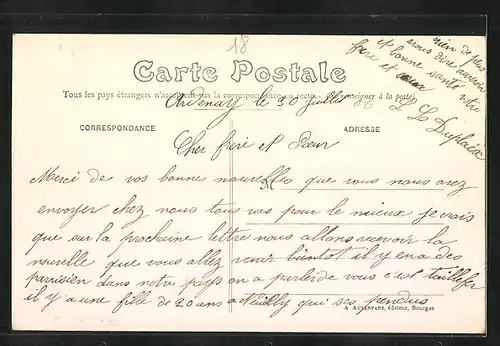 18
Carte Postale
Tous les pays étrangers n'acceptent pas la correspondance au recto. (Se renseigner à la poste).
Ardenay le 30 juillet 06
CORRESPONDANCE
ADRESSE
Cher frere et Sœur
Merci de vos bonnes nouvelles que vous nous avez
envoyer chez nous tous vas pour le mieux je crois
que sur la prochaine lettre nous allons recevoir la
nouvelle que vous allez venir bientot il y en a des
parrisien dans notre pays on a parler de vous c'est taillefer
il y a une fille de 20 ans a Neuilly qui ses pendus
A. AUXENFANS, éditeur, Bourges
rien de plus
a vous dire
et bonne santé votre
frere et sœur
L Duplaix